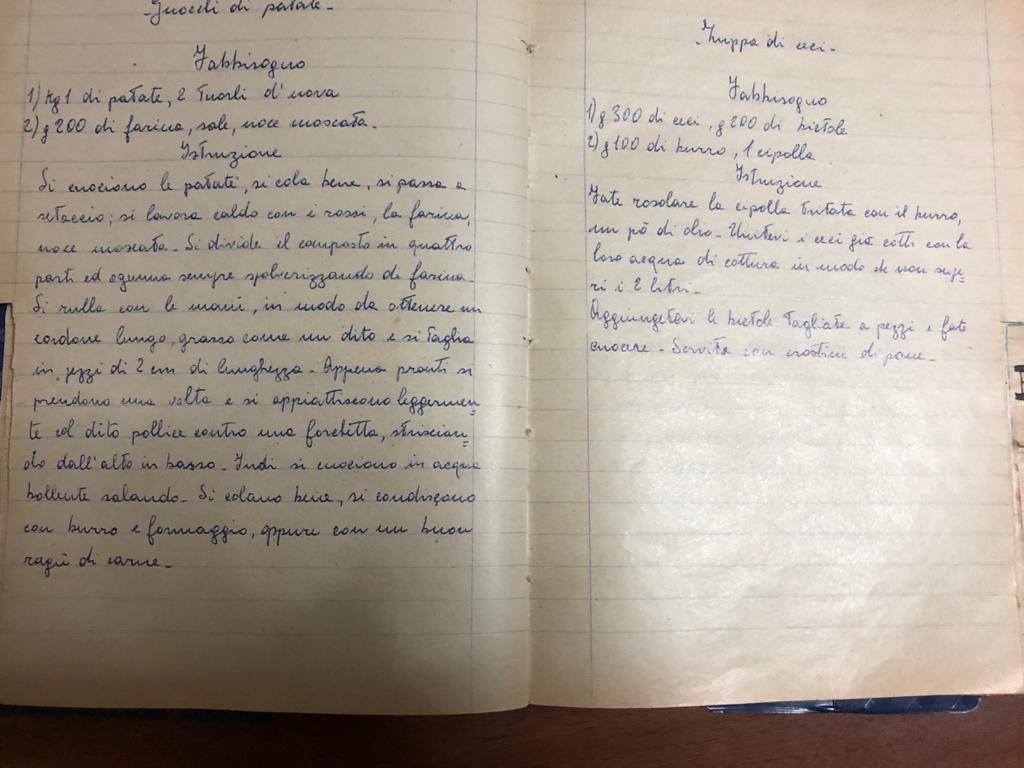 Gnocchi di patate-
Fabbisogno
1) kg 1 di patate, 2 tuorli d'uova
2) g 200 di farina, sale, noce moscata.
Istruzione
Si cuociono le patate, si cola bene, si passa a
setaccio; si lavora caldo con i rossi, la farina,
noce moscata- Si divide il composto in quattro
parti ed ognuna sempre spolverizzando di farina-
Si rulla con le mani, in modo da ottenere un
cordone lungo, grosso come un dito e si taglia
in pezzi di 2 cm di lunghezza- Appena pronti si
prendono una volta e si appiattiscono leggermen=
te col dito pollice contro una forchetta, striscian=
do dall'alto in basso- Indi si cuociono in acqua
bollente salando- Si colano bene, si condiscono
con burro e formaggio, oppure con un buon
ragù di carne-
Zuppa di ceci-
Fabbisogno
1) g 300 di ceci, g 200 di bietole
2) g 100 di burro, 1 cipolla
Istruzione
Fate rosolare la cipolla tritata con il burro,
un pò di olio- Unitevi i ceci già cotti con la
loro acqua di cottura in modo che non supe=
ri i 2 litri-
Aggiungetevi le bietole tagliate a pezzi e fate
cuocere- Servite con crostini di pane-